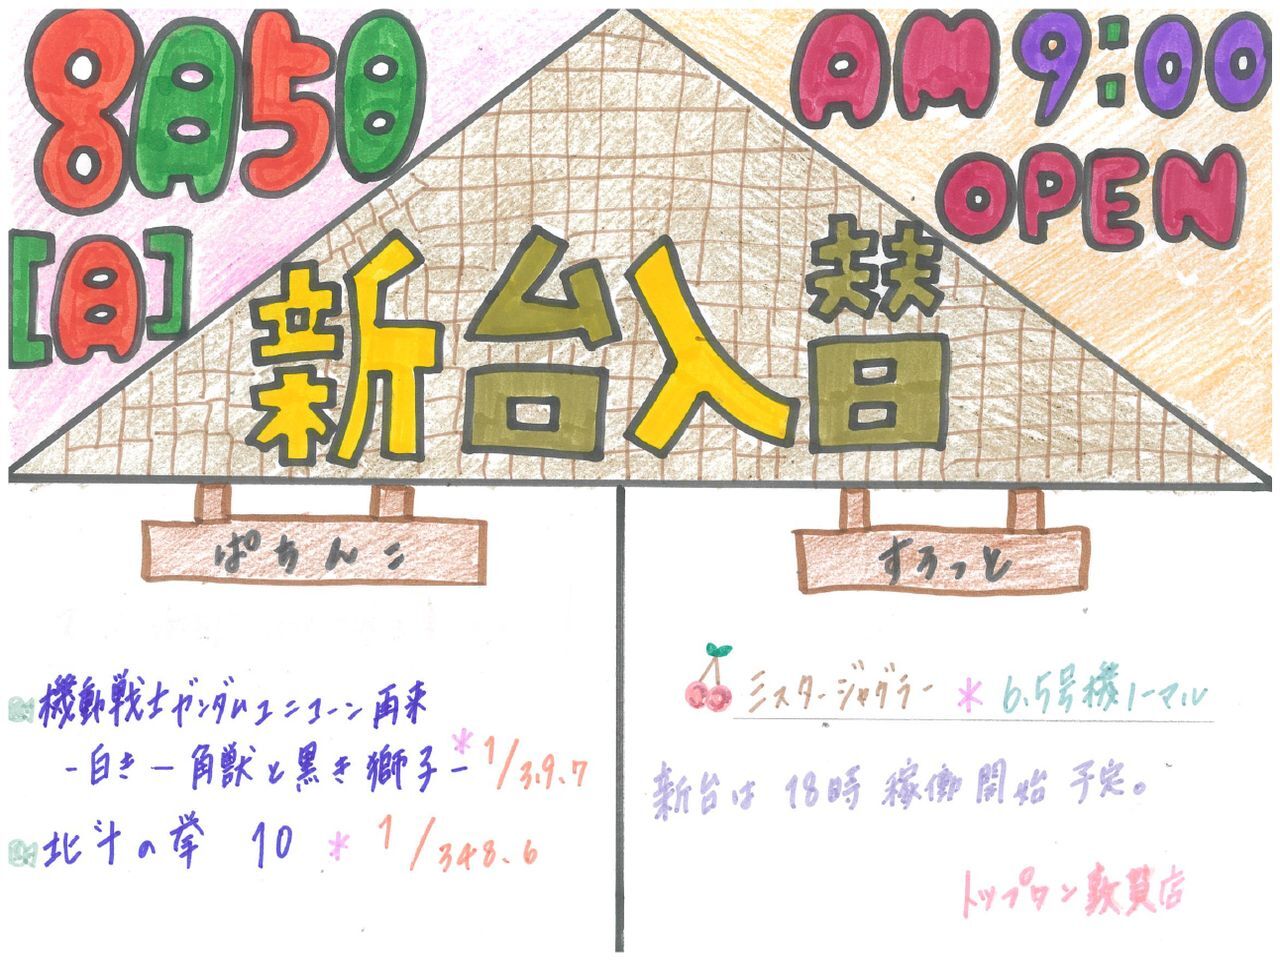 8月5日
[日]
AM 9:00
OPEN
新台入替
ぱちんこ
機動戦士ガンダムユニコーン再来
-白き一角獣と黒き獅子-*1/39.7
北斗の拳 10 * 1/348.6
すろっと
ミスタージャグラー * 6.5号機ノーマル
新台は 18時 稼働開始 予定。
トップワン敦賀店